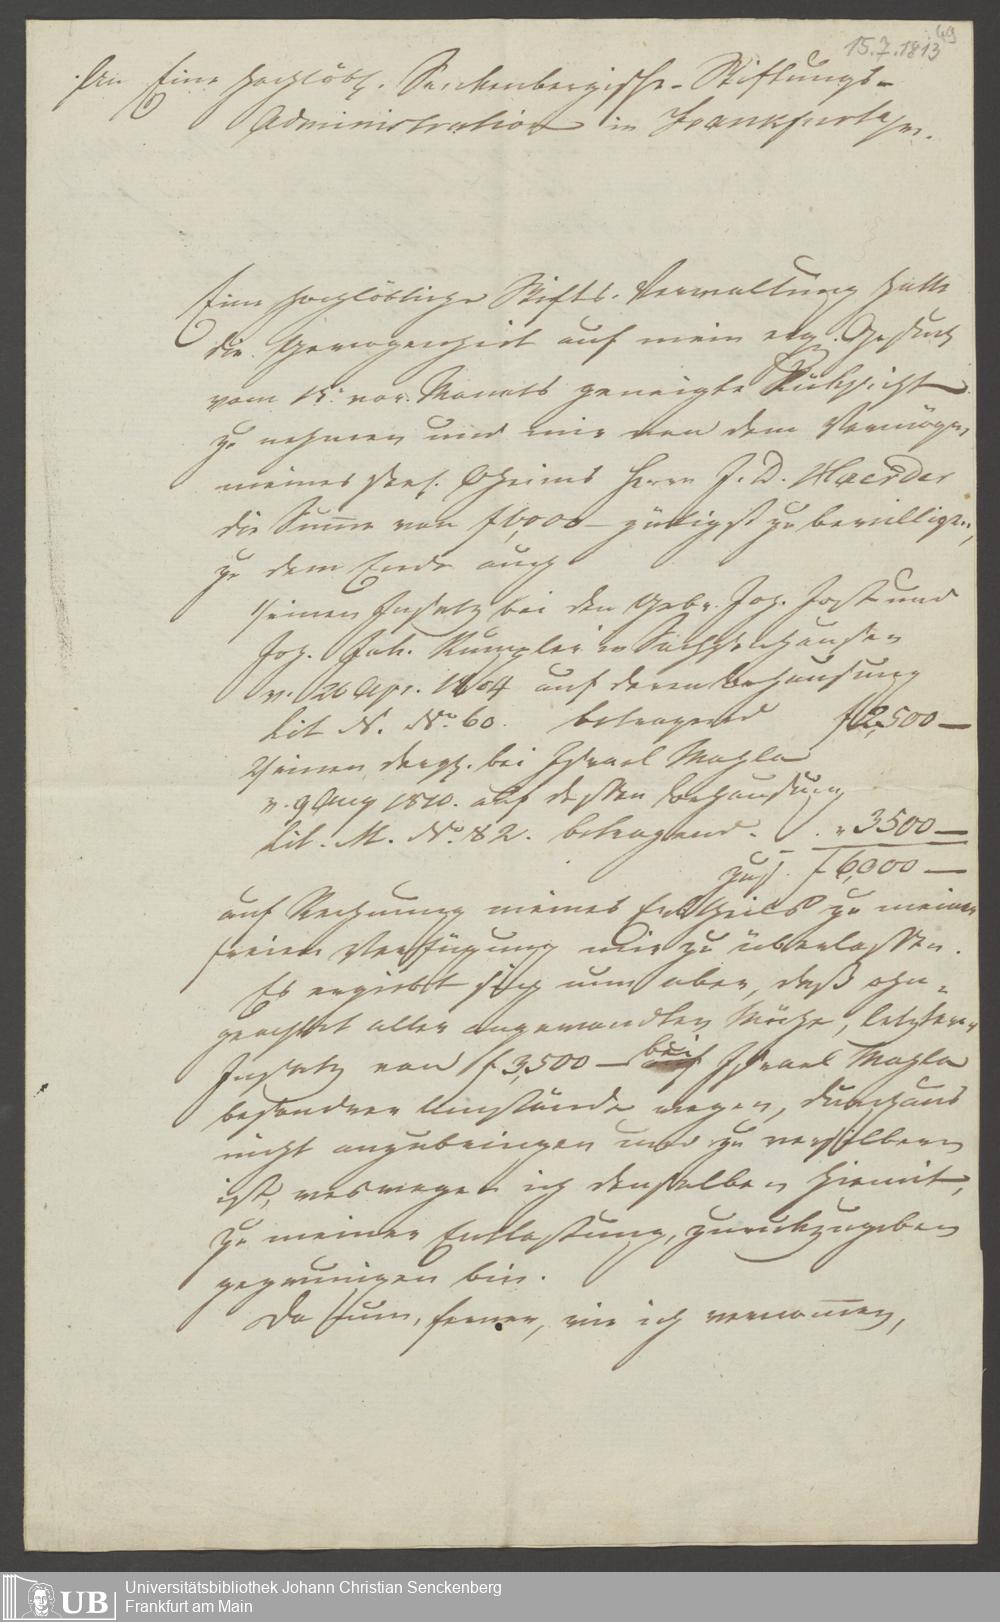 49
15.7.1813
An Eine Hochlöbl. Senckenbergische-Stiftungs-
Administration in Frankfurt a/m.
Eine Hochlöbliche Stifts-Verwaltung hatte
die Gewogenheit auf mein erg. Gesuch
vom 15. vor. Monats geneigte Rücksicht
zu nehmen und mir von dem Vermögen
meines seel. Oheims Herrn J. D.
die Summe von f 6,000 — gütigst zu bewilligen,
zu dem Ende auch
1/ einen Insatz bei den Gebr. Joh. Jost und
Joh. Rumpler in Sachsenhausen
v. 26 Apr. 1804 auf deren Behausung
Lit N. No 60. betragend f 2,500 —
2/ einen dergl. bei Israel Machla
v. 9 Aug 1810. auf dessen Behausung
Lit. M. No. 82. betragend. „ 3500 —
zus. f 6,000 —
auf Rechnung meines Erbtheils zu meiner
freien Verfügung mir zu überlassen.
Es ergiebt sich nun aber, daß ohn-
geachtet aller angewandten Mühe, letzterer
Insatz von f 3,500 — bei Israel Machla
besondrer Umstände wegen, durchaus
nicht anzubringen und zu versilbern
ist, weswegen ich denselben hiemit,
zu meiner Entlastung, zurückzugeben
gezwungen bin.
Da nun, ferner, wie ich vernommen,
UB
Universitätsbibliothek Johann Christian Senckenberg
Frankfurt am Main